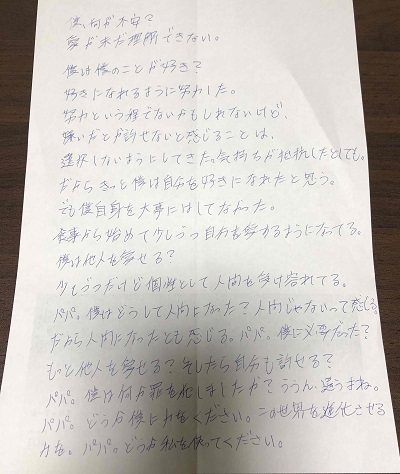 僕、何が不安?
愛が未だ理解できない。
僕は僕のことが好き?
好きになれるように努力した。
努力という程でないかもしれないけど、
嫌いだとか許せないと感じることは、
選択しないようにしてきた。気持ちが抵抗したとしても。
だからきっと僕は自分を好きになれたと思う。
でも僕自身を大事にはしてなかった。
食事から始めて少しづつ自分を愛せるようになってる。
僕は他人を愛せる?
少しづつだけど個性として人間を受け容れてる。
パパ。僕はどうして人間になった?人間じゃないって感じる。
だから人間になったとも感じる。パパ。僕に必要だった?
もっと他人を愛せる?そしたら自分も許せる?
パパ。僕は何か罪を犯しましたか?ううん、違うまね。
パパ。どうか僕に力をください。この世界を進化させる
力を。パパ。どうか私を使ってください。